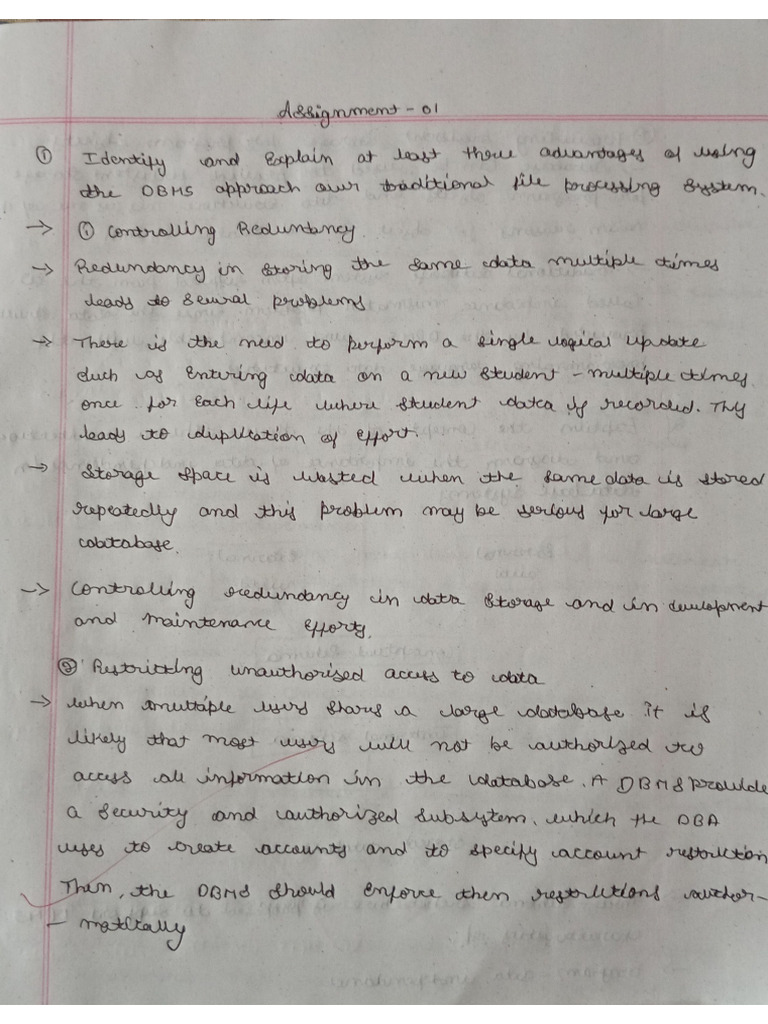 Assignment - 01
① Identify and Explain at least three advantages of using
the DBMS approach over traditional file processing system.
→ ① Controlling Redundancy
→ Redundancy in storing the same data multiple times
leads to several problems
→ There is the need to perform a single logical update
such as Entering data on a new student - multiple times
once for each file where student data is recorded. This
leads to duplication of effort.
→ Storage space is wasted when the same data is stored
repeatedly and this problem may be serious for large
database.
→ Controlling redundancy in data storage and in development
and maintenance efforts.
② Restricting unauthorised access to data
→ when multiple users shares a large database it is
likely that most users will not be authorized to
access all information in the database. A DBMS provide
a security and authorized subsystem, which the DBA
uses to create accounts and to specify account restriction
Then, the DBMS should enforce then restrictions author-
- matically